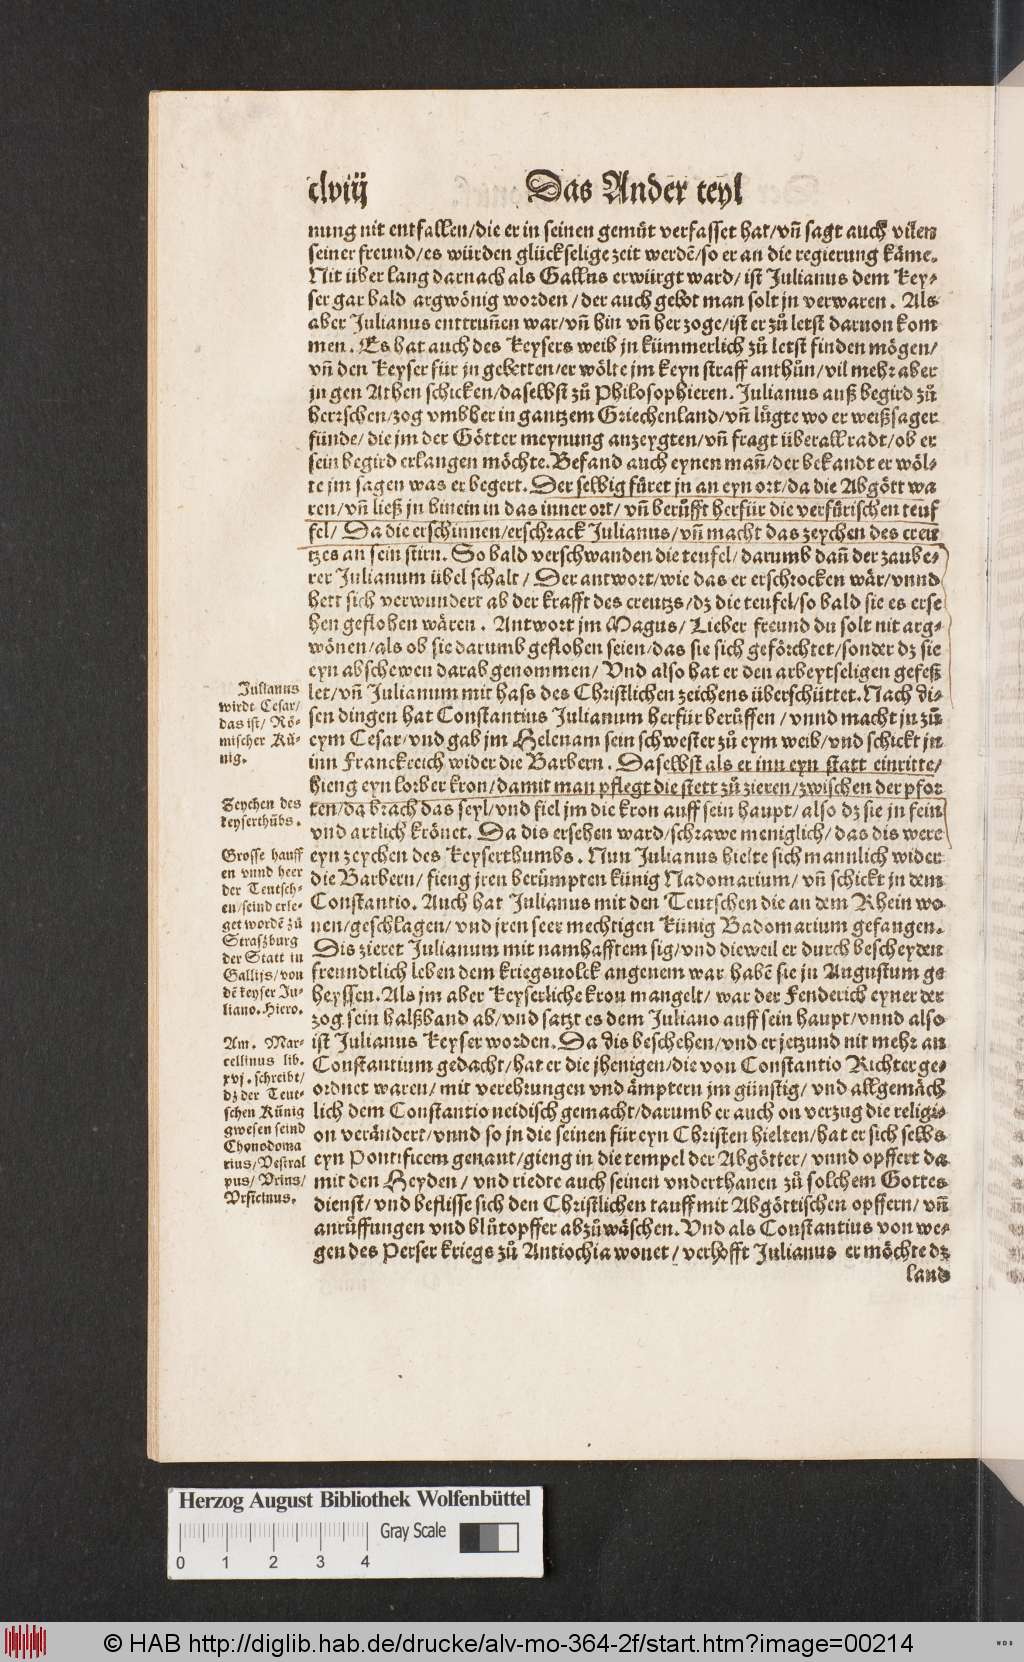 clviij Das Ander teyl
nung nit entfallen/die er in seinen gemüt verfasset hat/vñ sagt auch vilen
seiner freund/es würden glückselige zeit werdē/so er an die regierung käme.
Nit über lang darnach als Gallus erwürgt ward/ ist Julianus dem Key⸗
ser gar bald argwönig worden /der auch gebot man solt jn verwaren. Als
aber Julianus enttruñen war/vñ hin vñ her zoge/ist er zů letst daruon kom
men. Es hat auch des Keysers weib jn kümmerlich zů letst finden mögen/
vñ den Keyser für jn gebetten/er wölte jm keyn straff anthůn/vil mehr aber
jn gen Athen schicken/daselbst zů Philosophieren. Julianus auß begird zů
herrschen/zog vmbher in gantzem Griechenland/vñ lůgte wo er weißsager
fünde/ die jm der Götter meynung anzeygten/vñ fragt überall radt/ob er
sein begird erlangen möchte. Befand auch eynen mañ/der bekandt er wöl⸗
te jm sagen was er begert. Der selbig füret jn an eyn ort/da die Abgött wa
ren/vñ ließ jn hinein in das inner ort/ vñ berůfft herfür die verfürischen teuf
fel/ Da die erschinnen/erschrack Julianus/vñ macht das zeychen des creu
tzes an sein stirn. So bald verschwanden die teufel/ darumb dañ der zaube⸗
rer Julianum übel schalt / Der antwort/wie das er erschrocken wär/vnnd
hett sich verwundert ab der krafft des creutzs/dz die teufel/so bald sie es erse
hen geflohen wären. Antwort jm Magus/ Lieber freund du solt nit arg⸗
wönen/als ob sie darumb geflohen seien/das sie sich geförchtet/sonder dz sie
eyn abschewen darab genommen/ Vnd also hat er den arbeytseligen gefeß
let/vñ Julianum mit hass des Christlichen zeichens überschüttet. Nach di⸗
sen dingen hat Constantius Julianum herfür berůffen /vnnd macht jn zů
eym Cesar/vnd gab jm Helenam sein schwester zů eym weib/vnd schickt jn
inn Franckreich wider die Barbern. Daselbst als er inn eyn statt einritte/
hieng eyn lorber kron/damit man pflegt die stett zů zieren/zwischen der pfor
ten/da brach das seyl/vnd fiel jm die kron auff sein haupt/ also dz sie jn fein
vnd artlich krönet. Da dis ersehen ward/schrawe meniglich/ das dis were
eyn zeychen des Keyserthumbs. Nun Julianus hielte sich mannlich wider
die Barbern/ fieng jren berümpten künig Nadomarium/ vñ schickt jn dem
Constantio. Auch hat Julianus mit den Teutschen die an dem Rhein wo
nen/geschlagen/ vnd jren seer mechtigen Künig Badomarium gefangen.
Dis zieret Julianum mit namhafftem sig/vnd dieweil er durch bescheyden
freundtlich leben dem kriegsuolck angenem war habē sie jn Augustum ge
heyssen. Als jm aber Keyserliche kron mangelt/ war der Fenderich eyner der
zog sein halßband ab/vnd satzt es dem Juliano auff sein haupt/vnnd also
ist Julianus Keyser worden. Da dis beschehen/vnd er jetzund nit mehr an
Constantium gedacht/hat er die jhenigen/die von Constantio Richter ge⸗
ordnet waren/ mit verehrungen vnd ämptern jm günstig/ vnd allgemäch
lich dem Constantio neidisch gemacht/darumb er auch on verzug die religi⸗
on verändert/vnnd so jn die seinen für eyn Christen hielten/hat er sich selbs
eyn Pontificem genant/gieng in die tempel der Abgötter/ vnnd opffert da
mit den Heyden / vnd riedte auch seinen vnderthanen zů solchem Gottes
dienst/ vnd beflisse sich den Christlichen tauff mit Abgöttischen opffern/ vñ
anrůffungen vnd blůtopffer abzůwäschen. Vnd als Constantius von we⸗
gen des Perser kriegs zů Antiochia wonet / verhofft Julianus er möchte dz
land
Julianus
wirdt Cesar/
das ist/ Rö⸗
mischer Kü⸗
nig.
Zeychen des
keyserthůbs.
Grosse hauff
en vnnd heer
der Teutsch⸗
en/seind erle⸗
get wordē zů
Straßburg
der Statt in
Gallijs/von
dē keyser Ju⸗
liano. Hiero.
Am. Mar⸗
cellinus lib.
xvj. schreibt/
dz der Teut⸗
schen Künig
gwesen seind
Chonodoma
rius/Vestral
pus/ Vrius/
Vrsicinus.
Herzog August Bibliothek Wolfenbüttel
Gray Scale
0 1 2 3 4
© HAB http://diglib.hab.de/drucke/alv-mo-364-2f/start.htm?image=00214